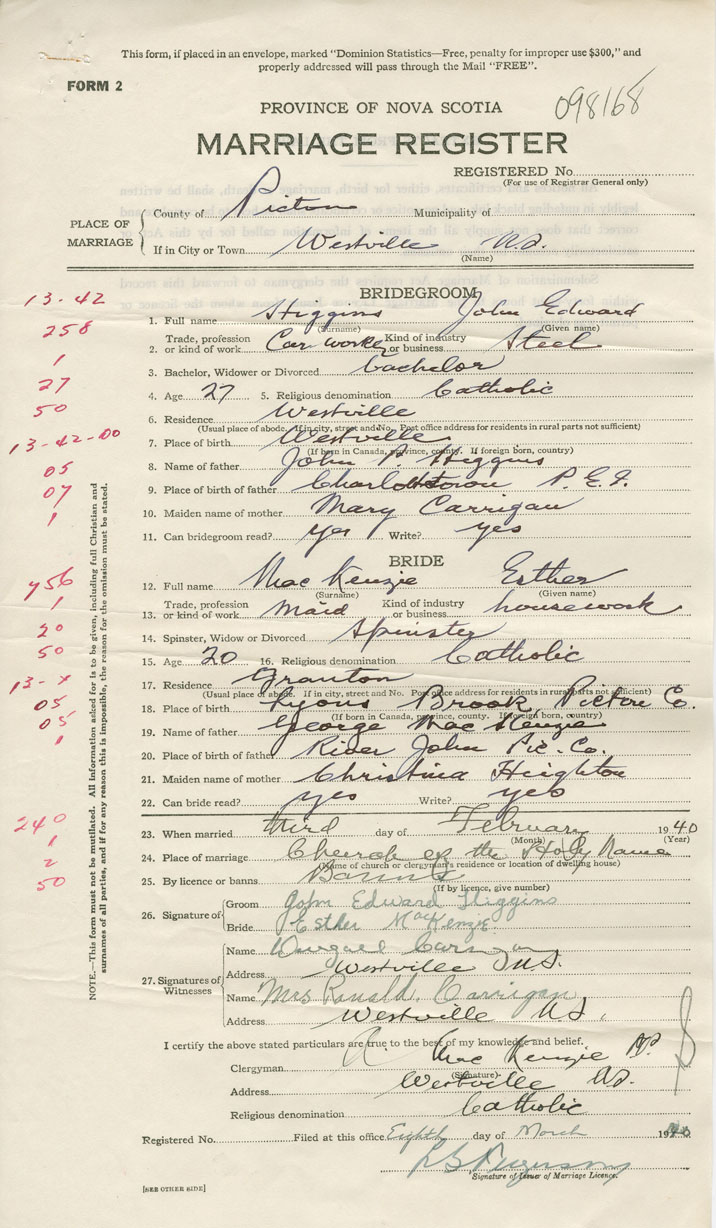 This form, if placed in an envelope, marked "Dominion Statistics—Free, penalty for improper use $300," and
properly addressed will pass through the Mail "FREE".
FORM 2
098168
PROVINCE OF NOVA SCOTIA
MARRIAGE REGISTER
REGISTERED No.
(For use of Registrar General only)
PLACE OF MARRIAGE
County of Pictou Municipality of
If in City or Town Westville N.S.
(Name)
BRIDEGROOM
13-42
1. Full name Higgins John Edward
(Surname) (Given name)
258
2. Trade, profession or kind of work Car worker Kind of industry or business Steel
1
3. Bachelor, Widower or Divorced bachelor
27
4. Age 27 5. Religious denomination Catholic
50
6. Residence Westville
(Usual place of abode. If in city, street and No. Post office address for residents in rural parts not sufficient)
13-42-00
7. Place of birth Westville
(If born in Canada, province, county. If foreign born, country)
05
8. Name of father John P. Higgins
07
9. Place of birth of father Charlottetown P.E.I.
1
10. Maiden name of mother Mary Carrigan
11. Can bridegroom read? yes Write? yes
BRIDE
12. Full name MacKenzie Esther
(Surname) (Given name)
756
1
13. Trade, profession or kind of work maid Kind of industry or business housework
20
14. Spinster, Widow or Divorced Spinster
50
15. Age 20 16. Religious denomination Catholic
13-x
17. Residence Granton
(Usual place of abode. If in city, street and No. Post office address for residents in rural parts not sufficient)
05
18. Place of birth Lyons Brook, Pictou Co.
(If born in Canada, province, county. If foreign born, country)
05
19. Name of father George MacKenzie
1
20. Place of birth of father River John Pic. Co.
21. Maiden name of mother Christina Heighton
22. Can bride read? yes Write? yes
240
23. When married third day of February 1940
(Month) (Year)
1
24. Place of marriage Church of the Holy Name
(Name of church or clergyman's residence or location of dwelling house)
2
25. By licence or banns Banns
(If by licence, give number)
50
26. Signature of
Groom John Edward Higgins
Bride Esther MacKenzie.
27. Signatures of Witnesses
Name
Address Westville N.S.
Name Mrs Ronald. Carrigan
Address Westville N.S.
I certify the above stated particulars are true to the best of my knowledge and belief.
Clergyman Mac Kenzie P.P.
(Signature)
Address Westville N.S.
Religious denomination Catholic
Registered No. Filed at this office Eighth day of March 1940
Signature of Issuer of Marriage Licence.
[SEE OTHER SIDE]
NOTE.—This form must not be mutilated. All information asked for is to be given, including full Christian and
surnames of all parties, and if for any reason this is impossible, the reason for the omission must be stated.